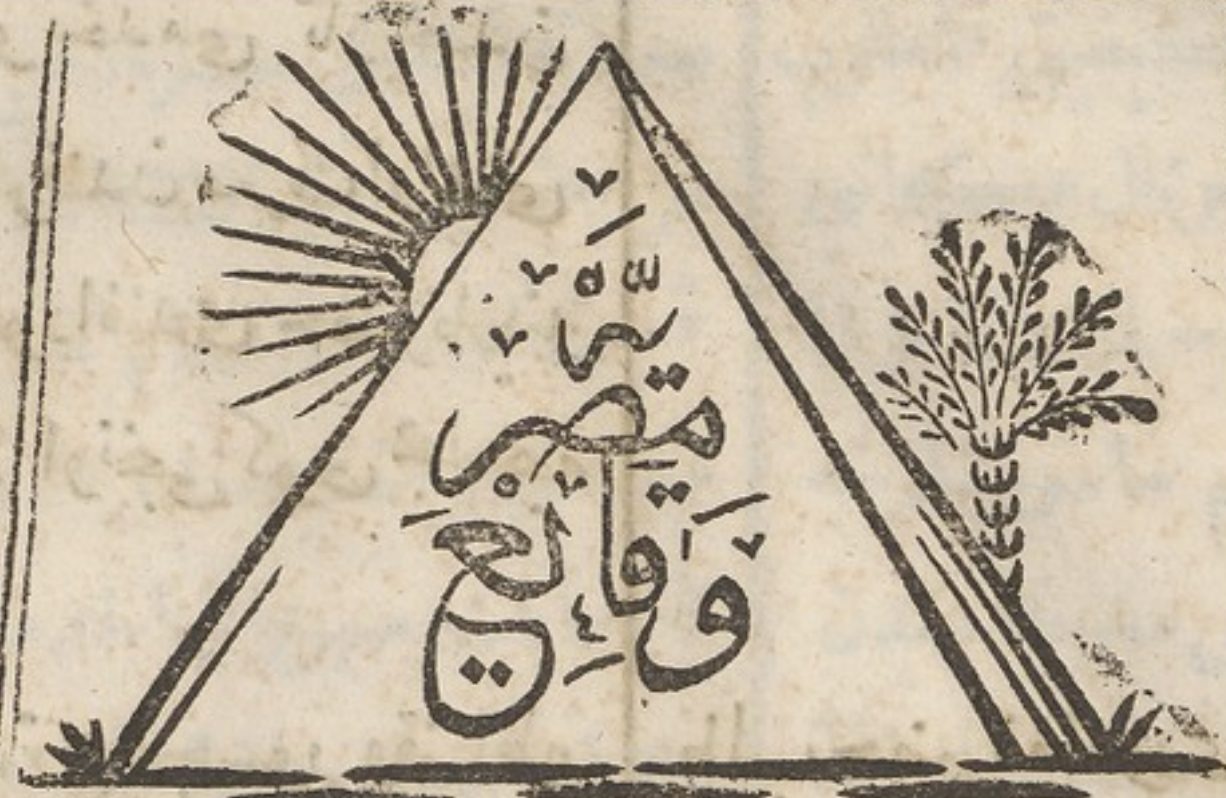 وَقَائِع
مِصْرِيَّة